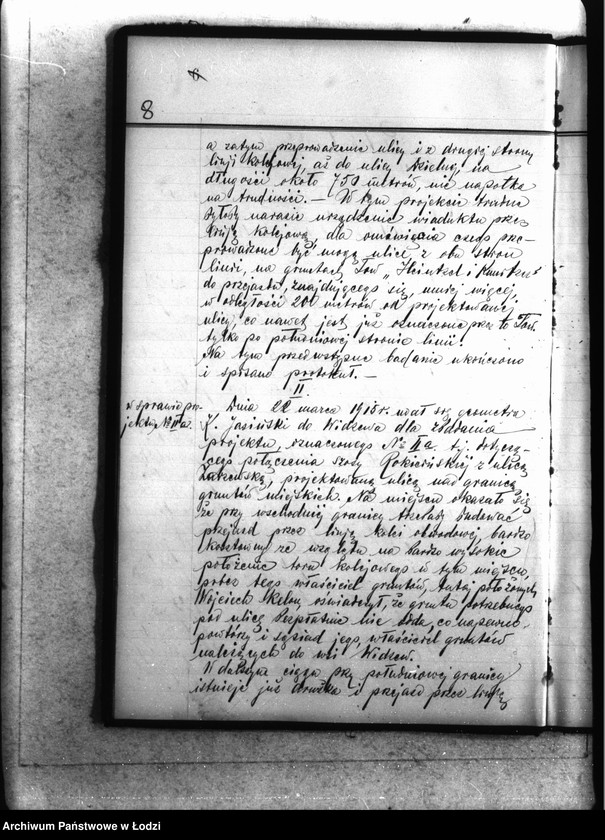 6
8
a zatym przeprowadzenie ulicy i z drugiej strony
linji kolejowej, aż do ulicy na
długości około 750 metrów, nie napotka
na trudności. — W tym projekcie trudne
byłoby narazie urządzenie wiaduktu przez
linję kolejową, dla ominięcia czego prze-
prowadzone być mogą ulice z obu stron
linii, na gruntach Tow „Heintzel i Kunitzer"
do przejazdu, znajdującego się, mniej więcej,
w odległości 200 metrów od projektowanej
ulicy, co nawet jest już oznaczone przez to Tow.
tylko po południowej stronie linii.
Na tym przedwstępne badanie ukończono
i spisano protokuł. —
II
w sprawie pro-
jektu, № IIa.
Dnia 22 marca 1915 r. udał się geometra
K. Jasiński do Widzewa dla zbadania
projektu, oznaczonego № IIa. tj. dotyczą-
cego połączenia szosy Rokicińskiej z ulicą
Zarzewską, projektowaną ulicą nad granicą
gruntów miejskich. Na miejscu okazało się,
że przy wschodniej granicy trzebaby budować
przejazd przez linję kolei obwodowej, bardzo
kosztowny ze względu na bardzo wysokie
położenie toru kolejowego w tym miejscu,
prócz tego właściciel gruntów, tutaj położonych
Wojciech oświadczył, że gruntu potrzebnego
pod ulicę bezpłatnie nie odda, co napewno
powtórzy i sąsiad jego, właściciel gruntów
należących do wsi Widzew.
W dalszym ciągu przy południowej granicy
istnieje już dróżka i przejazd przez linję
Archiwum Państwowe w Łodzi